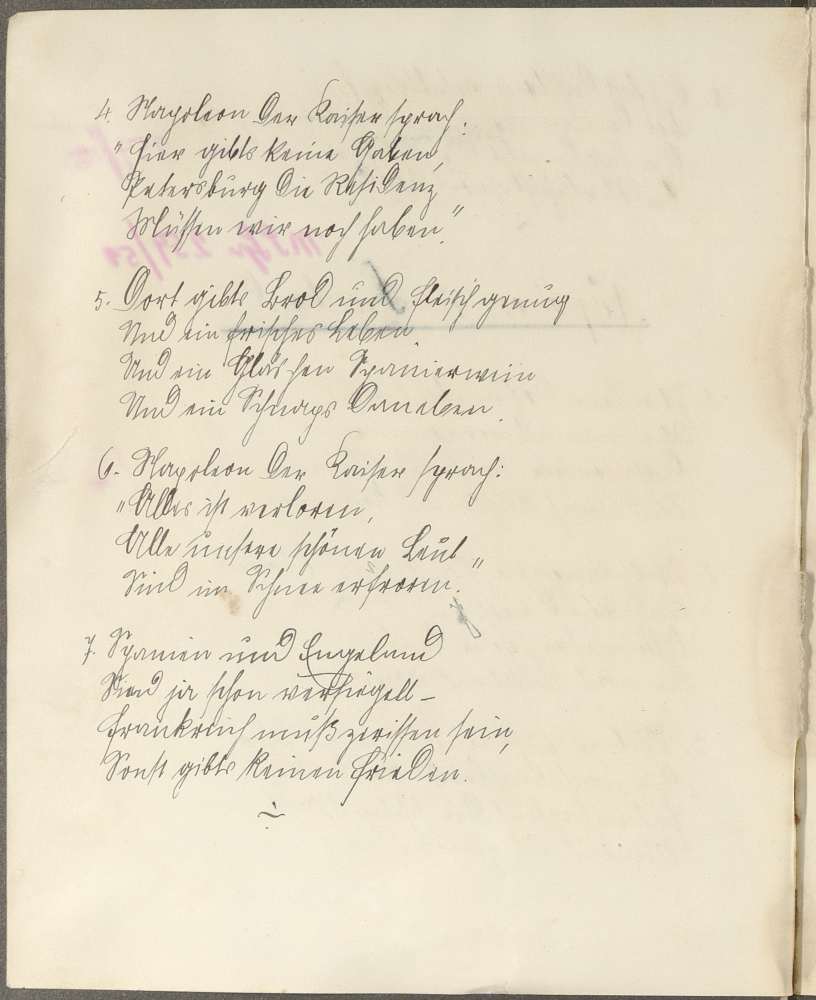 4. Napoleon der Kaiser sprach:
"Hier gibts keine Gaben,
Petersburg die Residenz
Müssen wir noch haben."
5. Dort gibts Brod und Fleisch genug
Und ein frisches Leben.
Und ein Gläschen Spanierwein
Und ein Schnaps daneben.
6. Napoleon der Kaiser sprach:
"Alles ist verloren,
Alle unsere schönen Leut
Sind im Schnee erfroren."
7. Spanien und Engeland
Sind ja schon versiegelt –
Frankreich muß zerissen sein,
Sonst gibts keinen Frieden.